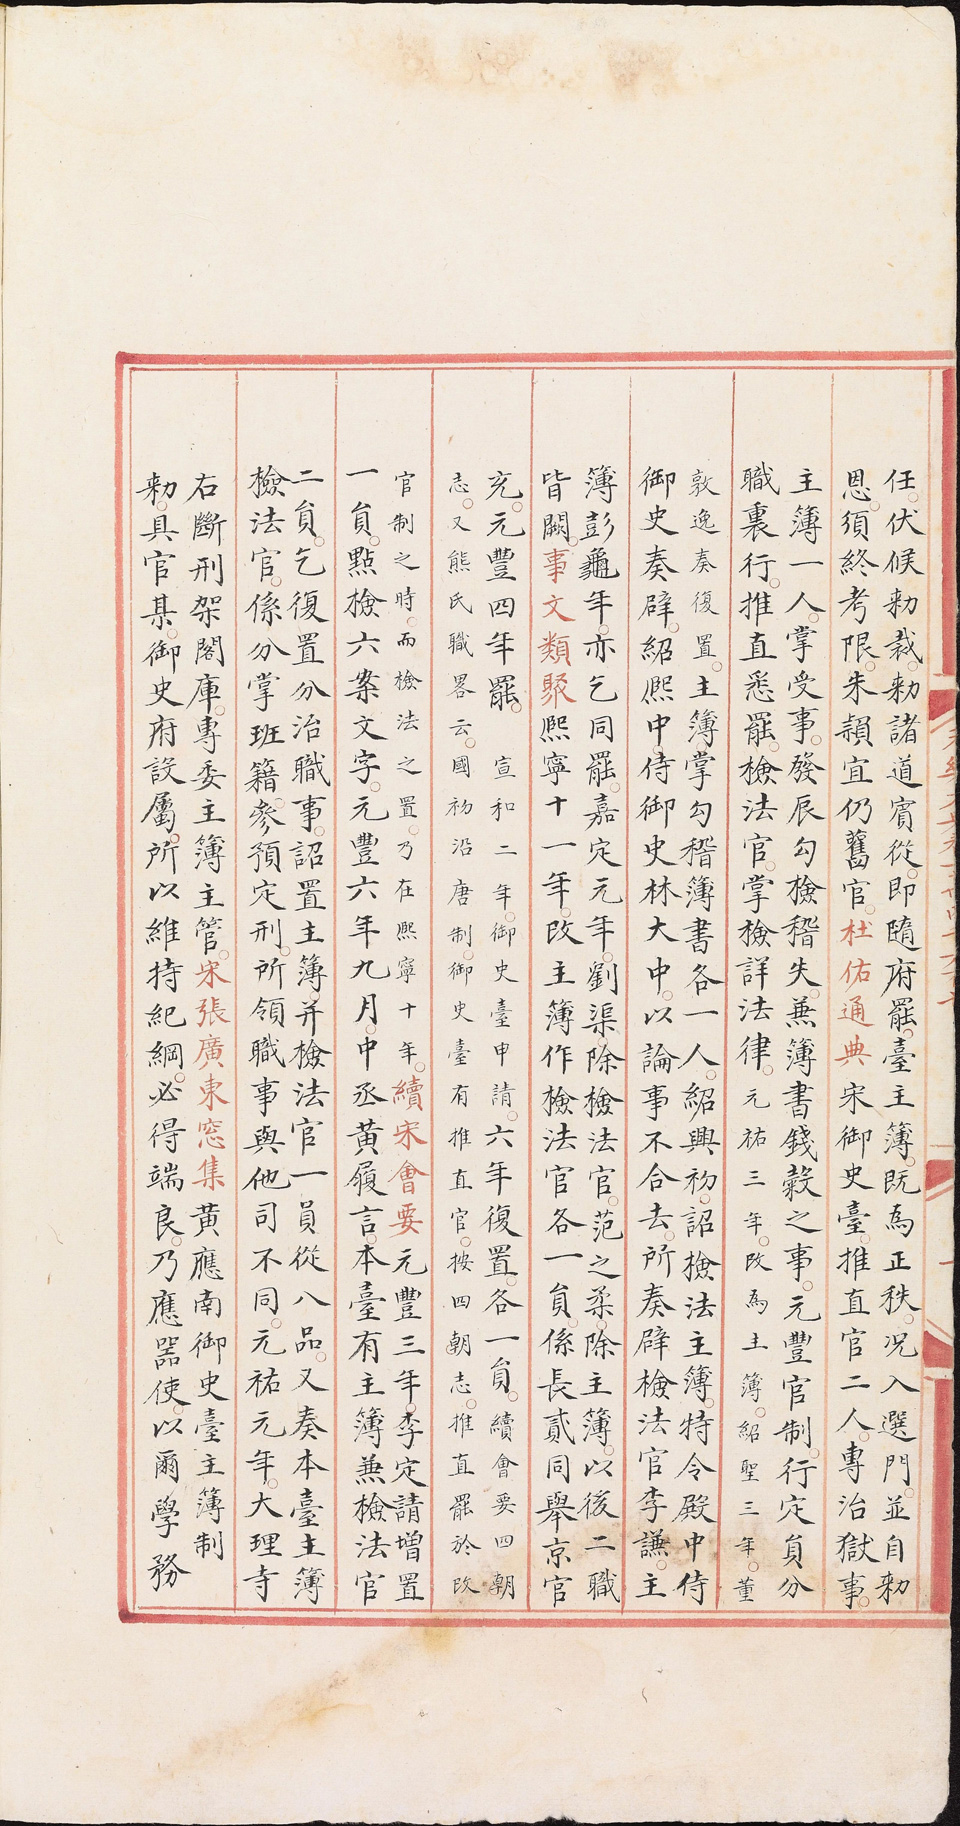 任。伏候勑裁。勑諸道賓從。即隨府罷。臺主簿。既為正秩。况入選門。並自勑
恩。須終考限。朱頴宜仍舊官。杜佑通典宋御史臺。推直官二人。專治獄事。
主簿一人。掌受事。發辰勾檢稽失。兼簿書錢穀之事。元豐官制。行定員分
職裏行。推直悉罷。檢法官。掌檢詳法律。元祐三年。改為主簿。紹聖三年。董
敦逸奏復置。主簿。掌勾稽簿書各一人。紹興初。詔檢法主簿。特令殿中侍
御史奏辟。紹熙中。侍御史林大中。以論事不合去。所奏辟檢法官李謙。主
簿彭龜年。亦乞同罷。嘉定元年。劉渠。除檢法官。范之柔。除主簿。以後二職
皆闕。事文類聚熙寧十一年。改主簿作檢法官各一員。係長貳同舉京官
充。元豐四年罷。宣和二年。御史臺申請。六年復置。各一員。續會要四朝
志。又熊氏職畧云。國初沿唐制。御史臺有推直官。按四朝志。推直罷於改
官制之時。而檢法之置。乃在熙寧十年。續宋會要元豐三年。李定請增置
一員。點檢六案文字。元豐六年九月。中丞黃履言。本臺有主簿兼檢法官
二員。乞復置分治職事。詔置主簿。并檢法官一員從八品。又奏本臺主簿
檢法官。係分掌班籍。參預定刑。所領職事與他司不同。元祐元年。大理寺
右斷刑架閣庫。專委主簿主管。宋張廣東窓集黃應南御史臺主簿制
勑。具官某。御史府設屬。所以維持紀綱。必得端良。乃應器使。以爾學務